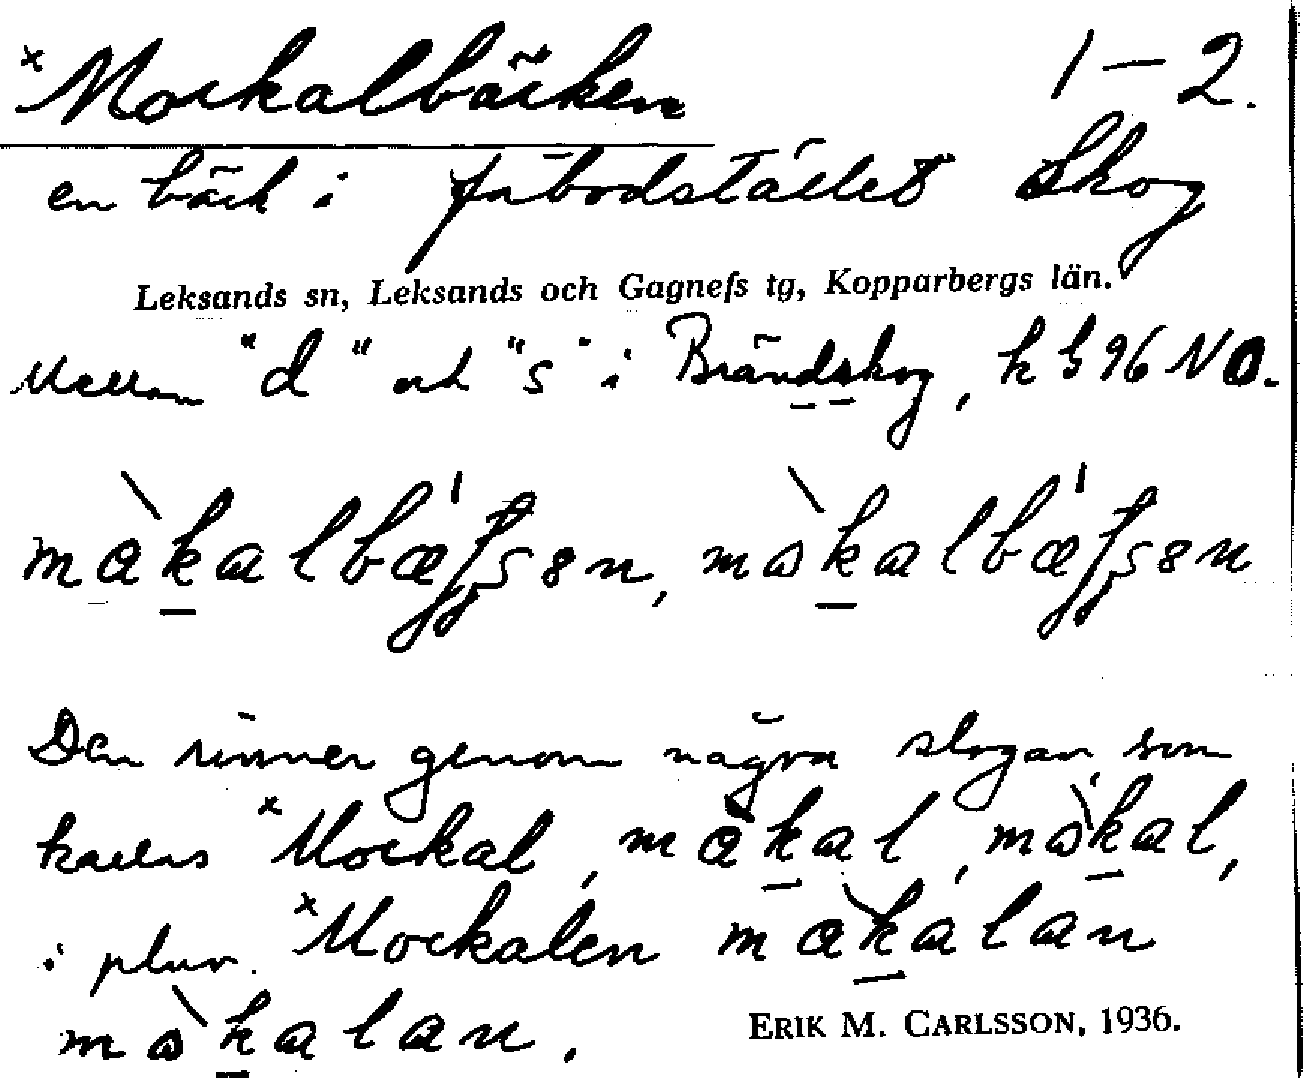 ×Mockalbäcken 1–2.
en bäck i fäbodstället Skog
Leksands sn, Leksands och Gagnefs tg, Kopparbergs län.
Mellan "d" och "s" i Brändskog, k b 96 NO.
mòkalbæ'
Den rinner genom några slogar som
kallas ×Mockal, màkal, mòkal,
i plur. ×Mockalen màkalan
mòkalan.
ERIK M. CARLSSON, 1936.